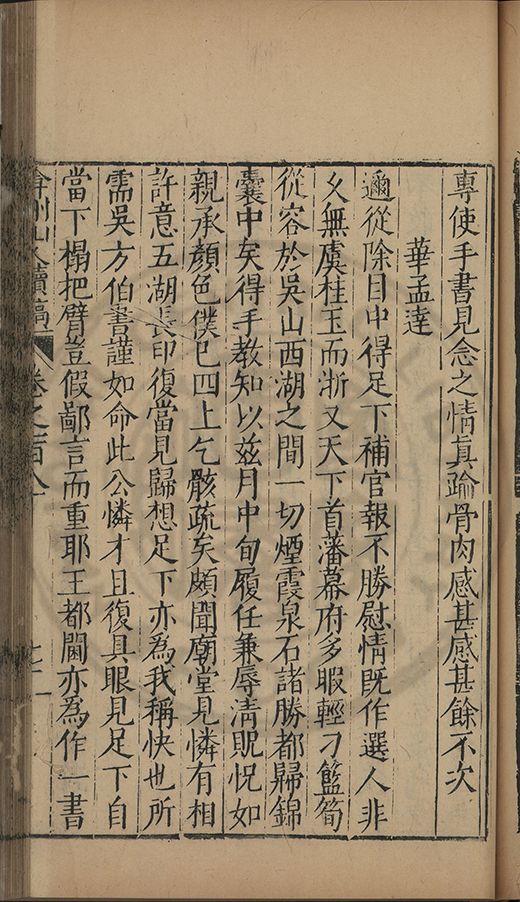 專使手書見念之情真踰骨肉感甚感甚餘不次
華孟達
邇從除目中得足下補官報不勝慰情既作選人非
久無虞桂玉而浙又天下首藩幕府多暇輕刁籃筍
從容於吳山西湖之間一切煙霞泉石諸勝都歸錦
囊中矣得手教知以茲月中旬履任兼辱清貺怳如
親承顏色僕已四上乞骸疏矣頗聞廟堂見憐有相
許意五湖長印復當見歸想足下亦為我稱快也所
需吳方伯書謹如命此公憐才且復具眼見足下自
當下榻把臂豈假鄙言而重耶王都閫亦為作一書
弇州山人續稿
卷之一百八